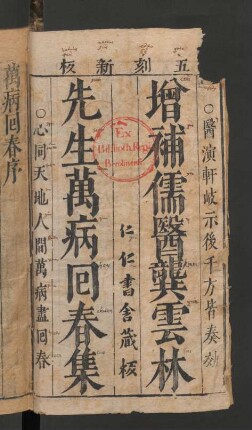 五刻新板
○醫演軒岐示後千方皆奏効
增補儒醫龔雲林
仁仁書舍藏板
先生萬病回春集
○心同天地人間萬病盡回春
Ex
Biblioth. Regia
Berolinensi
萬病回春序